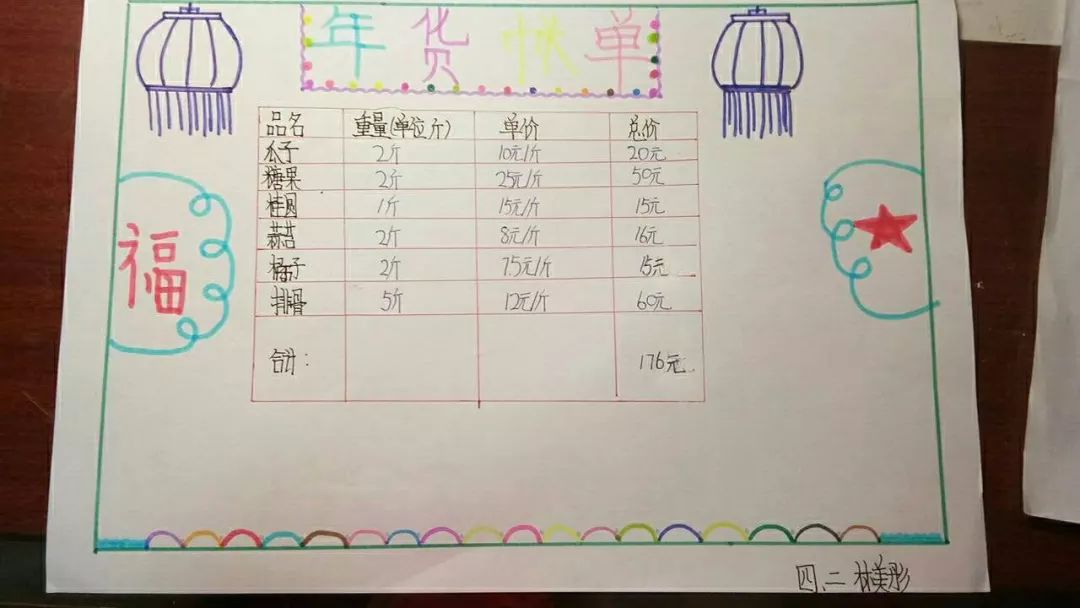 年货快单
品名 重量(单位斤) 单价 总价
瓜子 2斤 10元/斤 20元
糖果 2斤 25元/斤 50元
桂圆 1斤 15元/斤 15元
蘑菇 2斤 8元/斤 16元
橘子 2斤 7.5元/斤 15元
排骨 5斤 12元/斤 60元
合计: 176元
福
四.二 林美彤